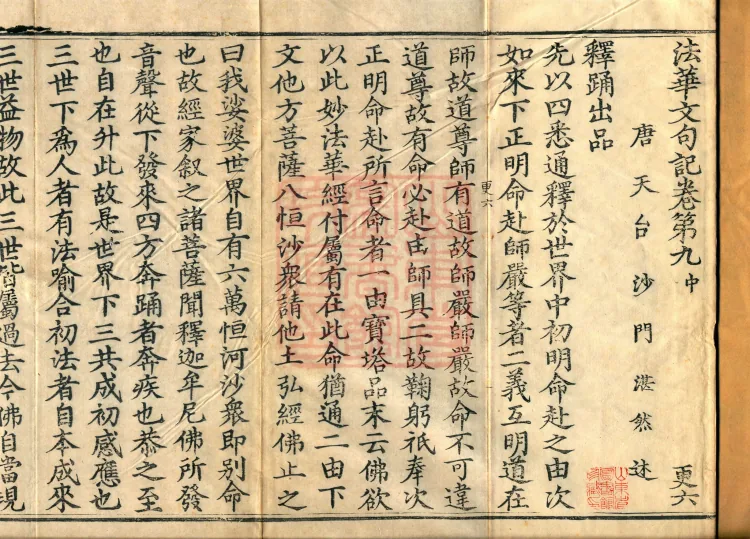 法華文句記卷第九中
更六
唐天台沙門湛然述
釋踊出品
先以四悉通釋於世界中初明命赴之由次
如來下正明命赴師嚴等者二義互明道在
師故道尊師有道故師嚴師嚴故命不可違
更六
道尊故有命必赴由師具二故鞠躬祇奉次
正明命赴所言命者一由寶塔品末云佛欲
以此妙法華經付屬有在此命猶通二由下
文他方菩薩八恒沙衆請他土弘經佛止之
曰我娑婆世界自有六萬恒河沙衆即別命
也故經家叙之諸菩薩聞釋迦牟尼佛所發
音聲從下發來四方奔踊者奔疾也恭之至
也自在升此故是世界下三共成初感應也
三世下爲人者有法喻合初法者自本成來
三世益物故此三世皆屬過去今佛自當現